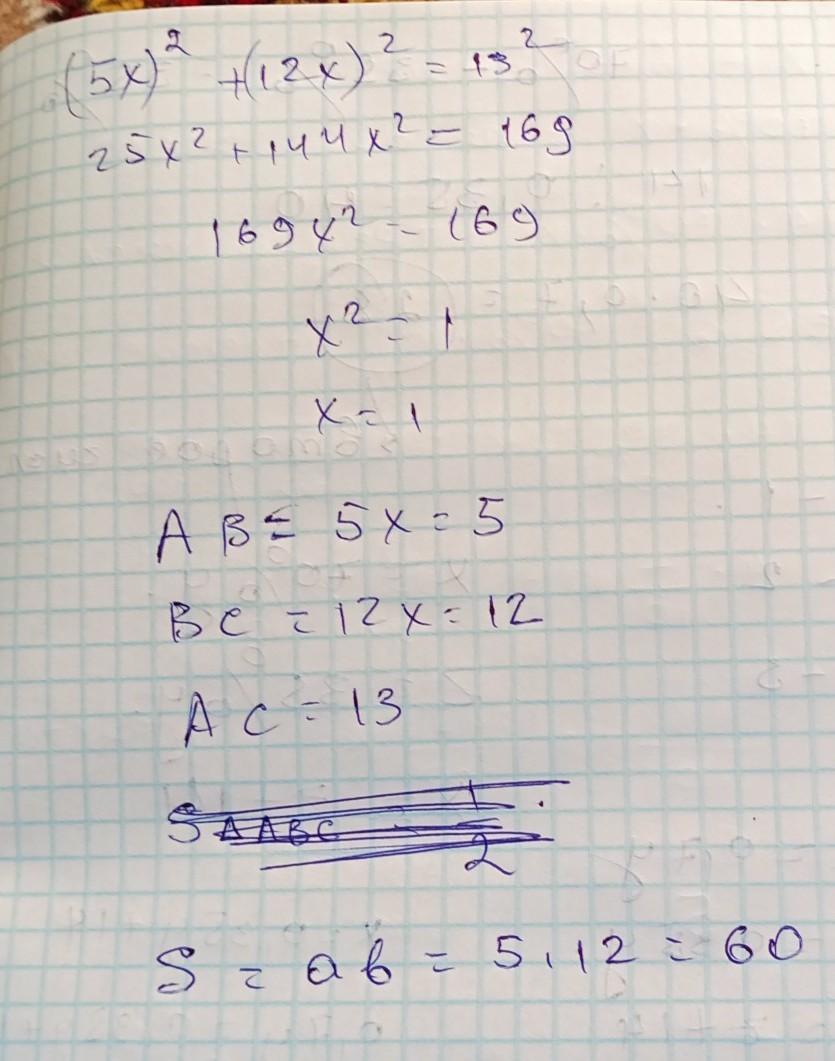 (5x)² + (12x)² = 13²
25x² + 144x² = 169
169x² = 169
x² = 1
x = 1
AB = 5x = 5
BC = 12x = 12
AC = 13
S = ab = 5 · 12 = 60